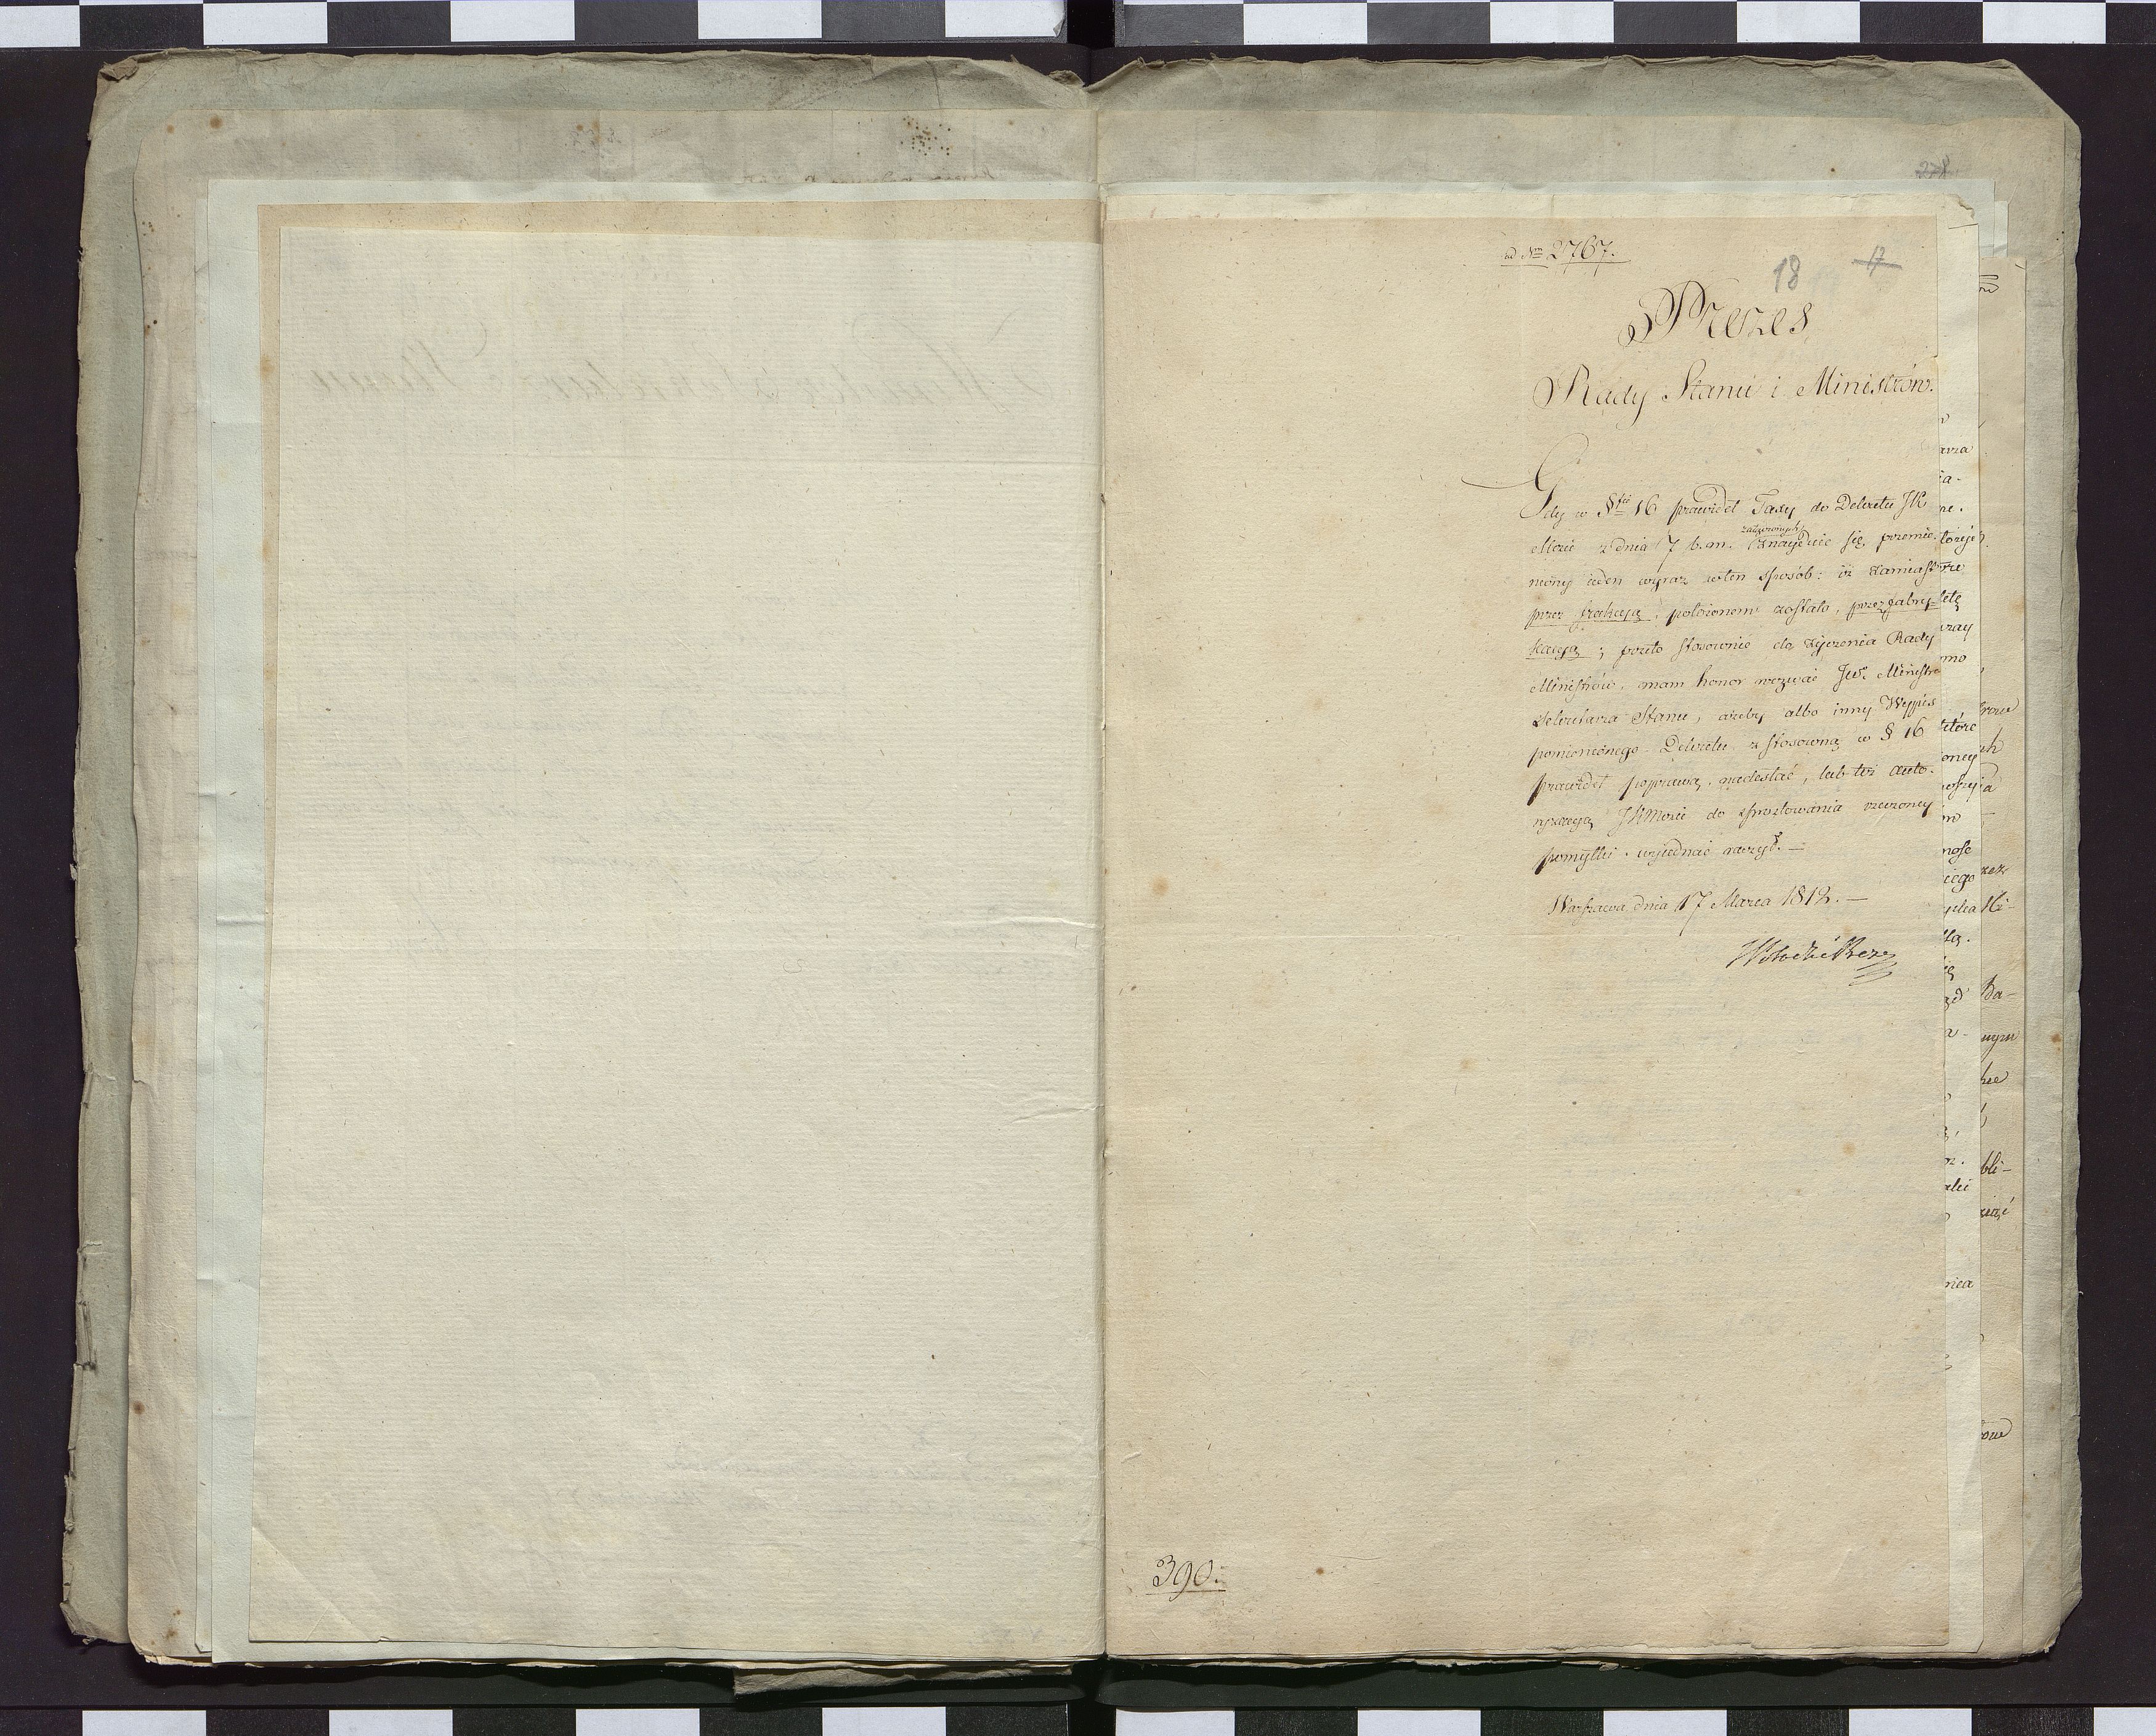 278
ad Nrm 2767.
18 17
Prezes
Rady Stanu i Ministrów.
Gdy w §fie 16 prawideł Taxy do Dekretu JK
Mości z dnia 7 b. m. załączonych znayduie się przemie-
niony ieden wyraz w ten sposób: iż zamiast
przez frakcyą, położonem zostało, przez fabry-
kacyą; przeto stosownie do życzenia Rady
Ministrów, mam honor wezwać JW. Ministra
Sekretarza Stanu, ażeby albo inny Wypis
pomienionego Dekretu z stosowną w § 16
prawideł poprawą, nadesłać, lub też auto-
ryzacyą JKMości do sprostowania rzeczoney
pomyłki, wyiednać raczył. —
Warszawa dnia 17 Marca 1812. —
390.